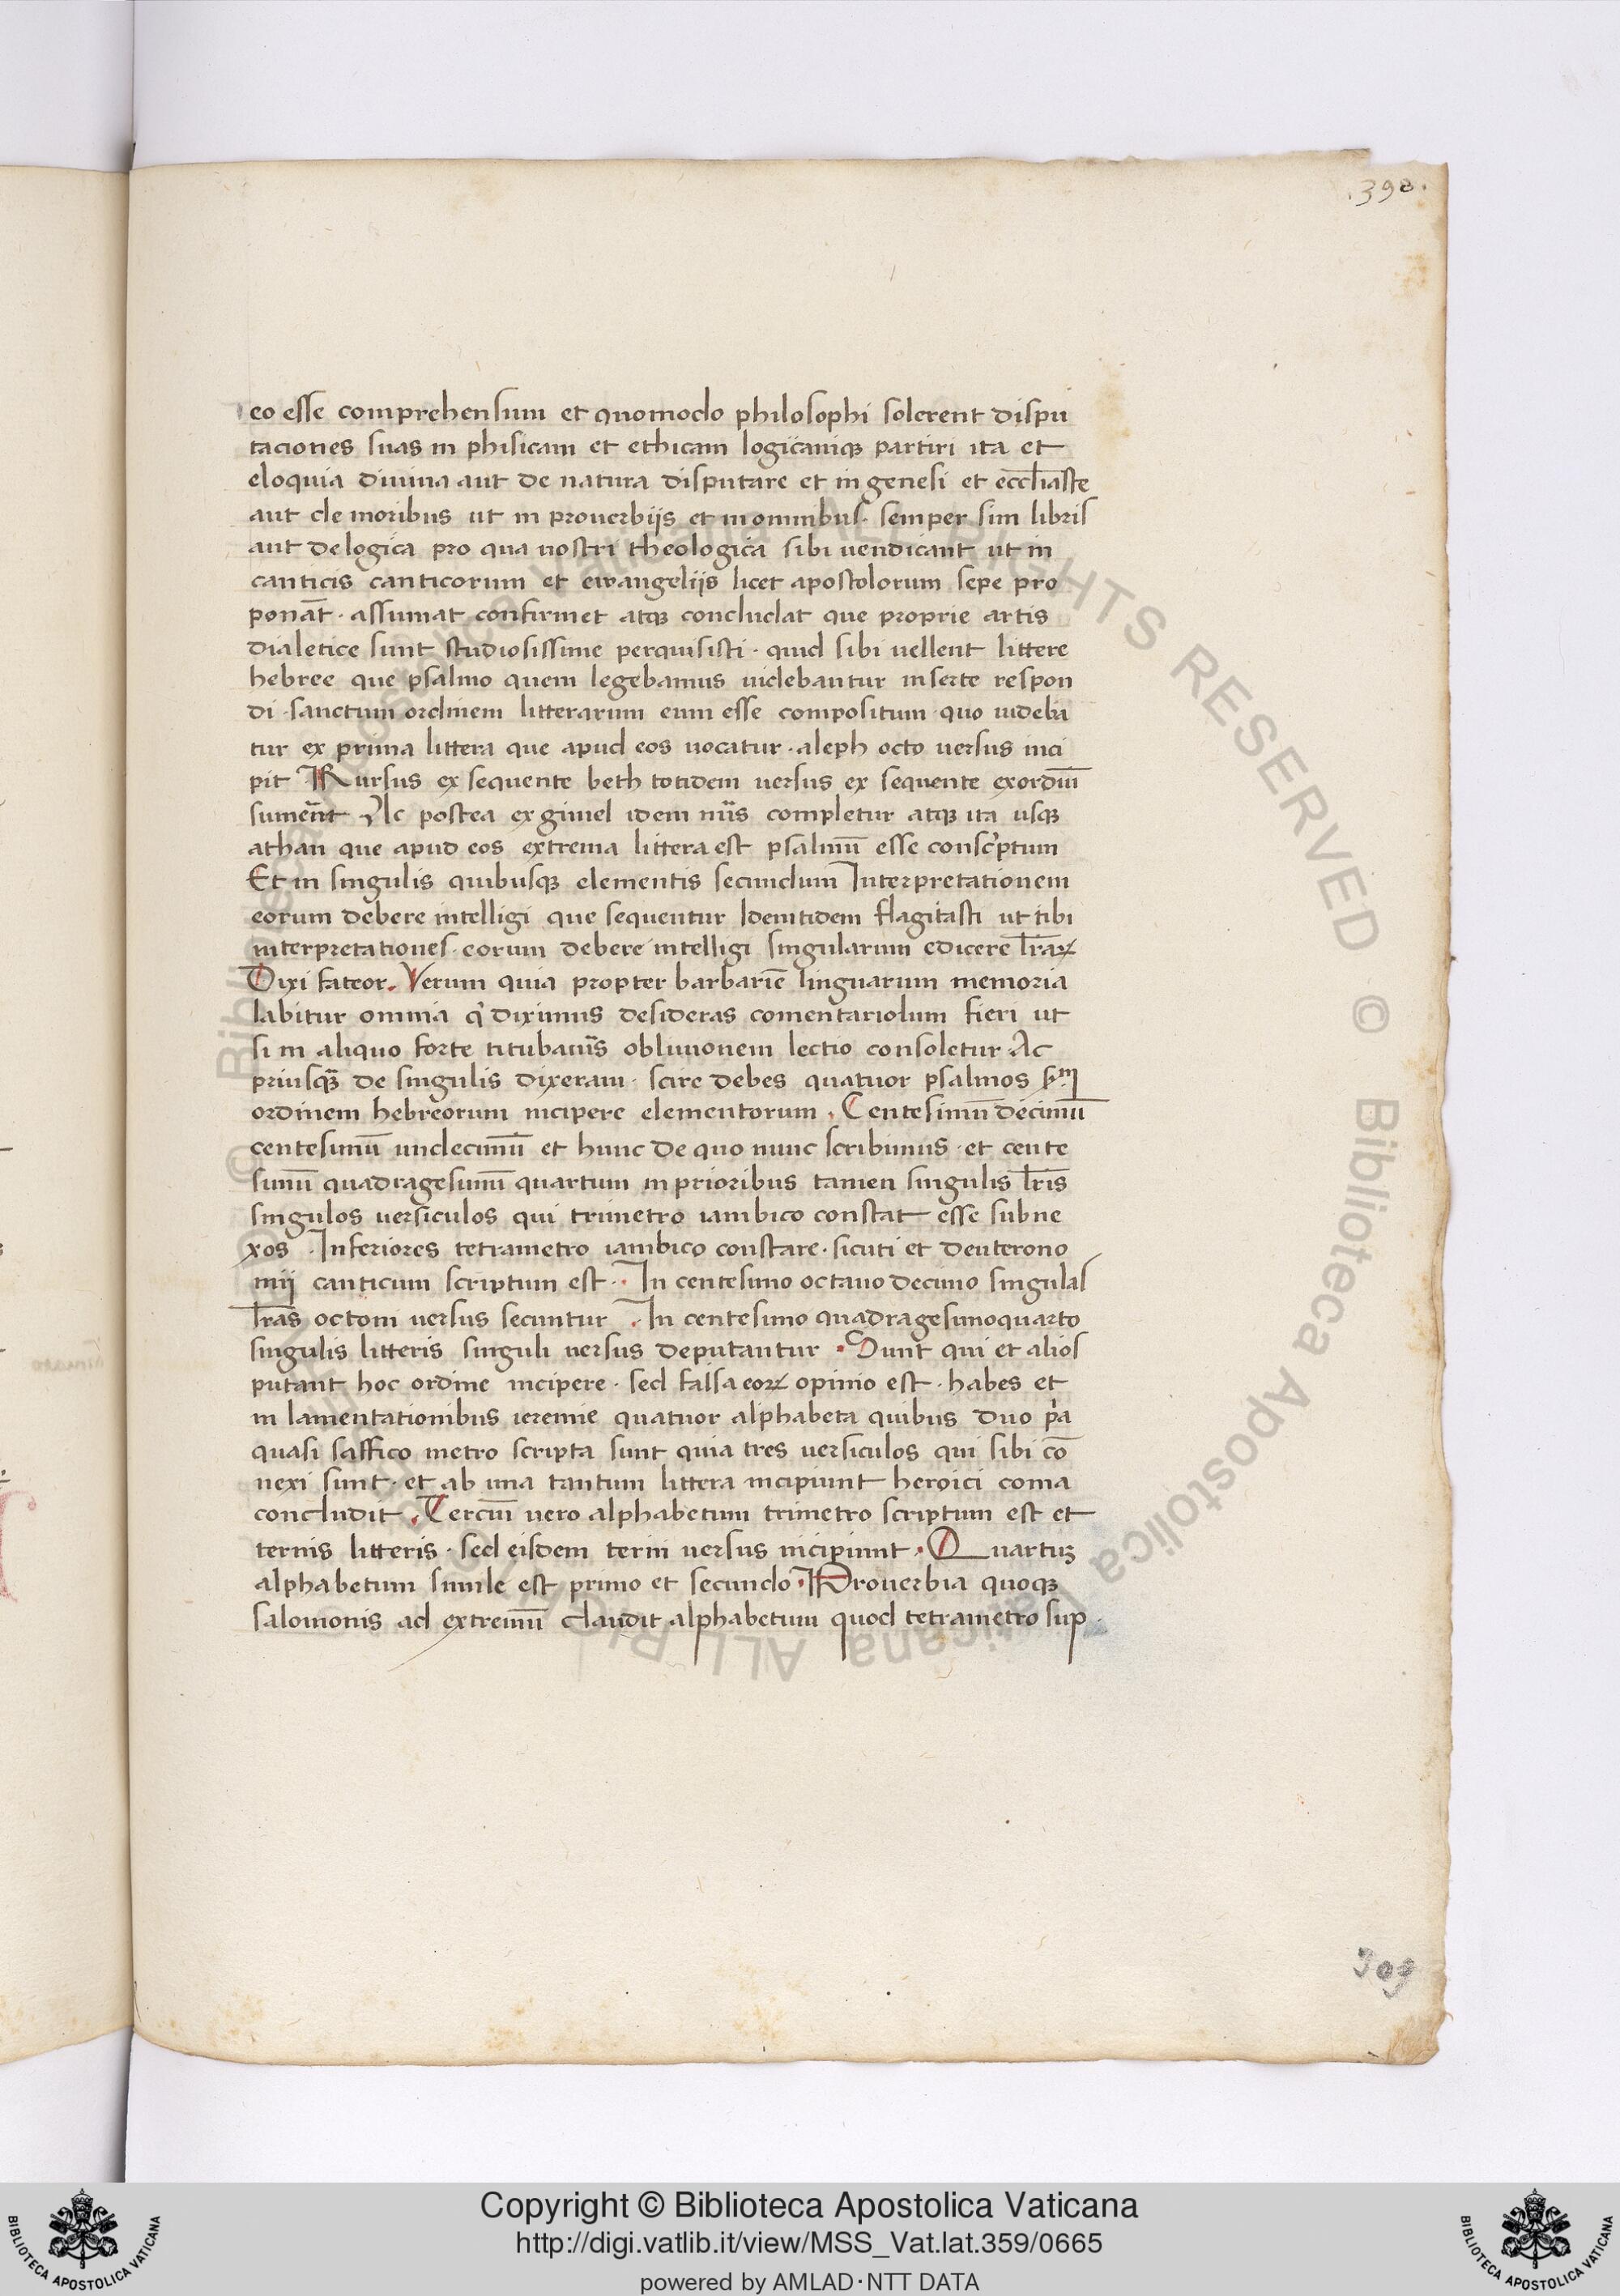 .398.
eo esse comprehensum et quomodo philosophi solerent dispu
taciones suas in phisicam et ethicam logicamqꝫ partiri ita et
eloquia diuina aut de natura disputare et in genesi et eccl̄iaste
aut de moribus ut in prouerbijs et in omnibus· semper sim libris
aut de logica pro qua nostri theologica sibi uendicant ut in
canticis canticorum et ewangelijs licet apostolorum sepe pro
ponāt · assumat confirmet atqꝫ concludat que proprie artis
dialetice sunt studiosissime perquisisti · quid sibi uellent littere
hebree que psalmo quem legebamus uidebantur inserte respon
di · sanctum ordinem litterarum eum esse compositum quo uideba
tur ex prima littera que apud eos uocatur · aleph octo uersus inci
pit Rursus ex sequente beth totidem uersus ex sequente exordiū
sumēnt Ac postea ex gimel idem nūs completur atqꝫ ita usqꝫ
athau que apud eos extrema littera est psalmū esse conscͥptum
Et in singulis quibusqꝫ elementis secundum Interpretationem
eorum debere intelligi que sequentur Idemtidem flagitasti ut tibi
interpretationes· eorum debere intelligi singularum edicere lr̄aꝝ
Dixi fateor. Verum quia propter barbariē linguarum memoria
labitur omnia qͥ diximus desideras comentariolum fieri ut
si in aliquo forte titubauīs obliuionem lectio consoletur · Ac
priusqꝫ̄ de singulis dixeram · scire debes quatuor psalmos sᵐ
ordinem hebreorum incipere elementorum . Centesimū decimū
centesimū undecimū et hunc de quo nunc scribimus · et cente
simū quadragesimū quartum in prioribus tamen singulis lr̄is
singulos uersiculos qui trimetro iambico constat esse subne
xos . Inferiores tetrametro iambico constare · sicuti et deuterono
mij canticum scriptum est · In centesimo octauo decimo singulas
lr̄as octoni uersus secuntur . In centesimo quadragesimoquarto
singulis litteris singuli uersus deputantur . Sunt qui et alios
putant hoc ordine incipere · sed falsa eoꝝ opinio est · habes et
in lamentationibus ieremie quatuor alphabeta quibus duo pͥa
quasi saffico metro scripta sunt quia tres uersiculos qui sibi cō
nexi sunt · et ab una tantum littera incipiunt heroici coma
concludit . Terciū uero alphabetum trimetro scriptum est et
ternis litteris · sed eisdem terni uersus incipiunt . Quartuꝫ
alphabetum simile est primo et secundo . Prouerbia quoqꝫ
salomonis ad extremū claudit alphabetum quod tetrametro sup
309
© Biblioteca Apostolica Vaticana ALL RIGHTS RESERVED
Copyright © Biblioteca Apostolica Vaticana
http://digi.vatlib.it/view/MSS_Vat.lat.359/0665
powered by AMLAD·NTT DATA
BIBLIOTECA APOSTOLICA VATICANA
BIBLIOTECA APOSTOLICA VATICANA